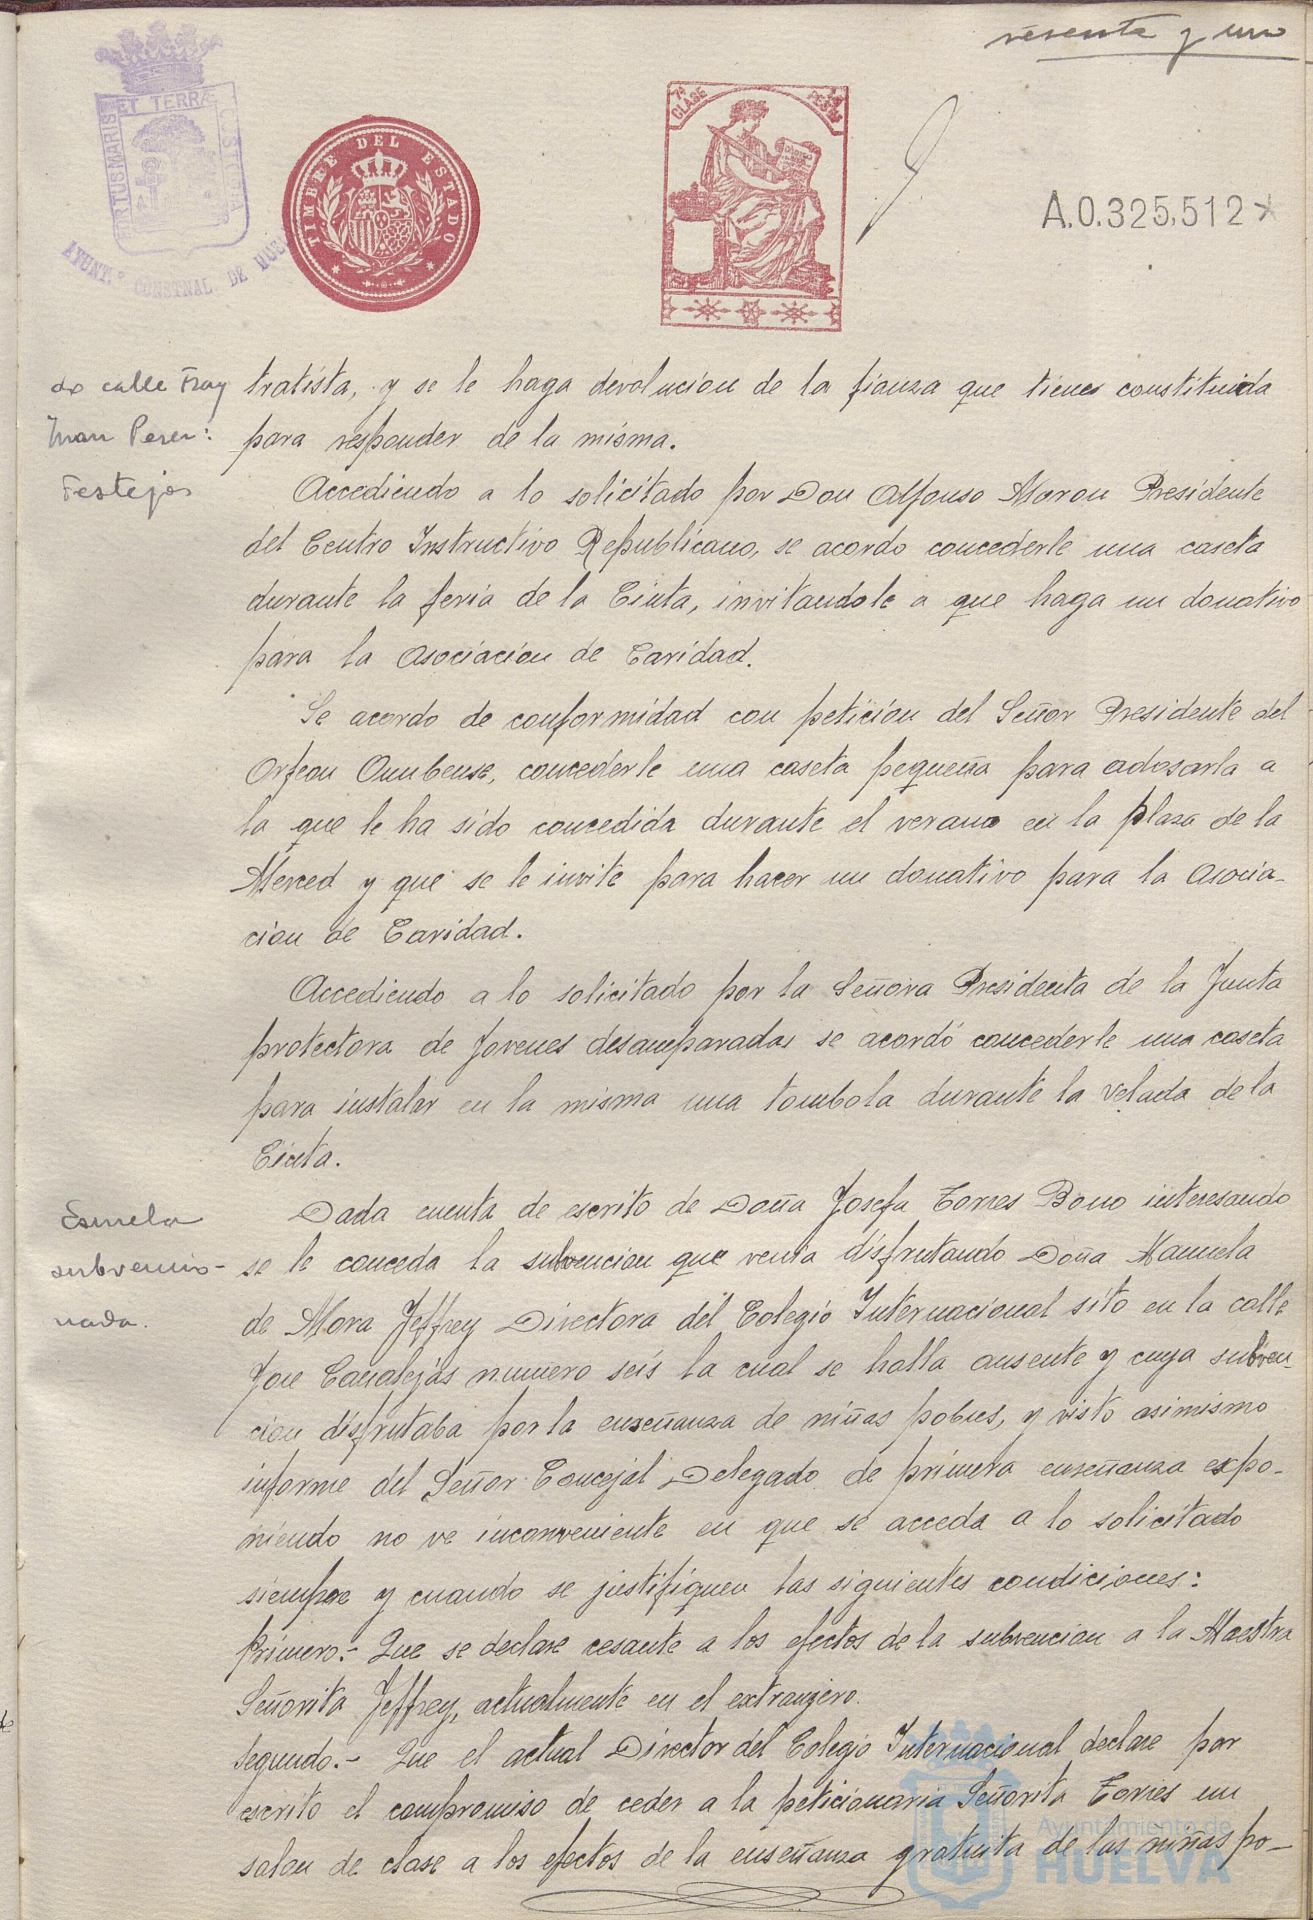 sesenta y uno
PORTUS MARIS ET TERRÆ CUSTODIA
AYUNT.º CONSTNAL DE HUEL
TIMBRE DEL ESTADO
7ª CLASE
PESTAS
A.0.325.512*
de calle Fray
Juan Perez:
tratista, y se le haga devolucion de la fianza que tienes constituida
para responder de la misma.
Festejos
Accediendo a lo solicitado por Don Alfonso Moron Presidente
del Centro Instructivo Republicano, se acordo concederle una caseta
durante la feria de la Cinta, invitandole a que haga un donativo
para la Asociacion de Caridad.
Se acordo de conformidad con peticion del Señor Presidente del
Orfeon Onubense, concederle una caseta pequeña para adosarla a
la que le ha sido concedida durante el verano en la plaza de la
Merced y que se le invite para hacer un donativo para la Asocia-
cion de Caridad.
Accediendo a lo solicitado por la Señora Presidenta de la Junta
protectora de Jovenes desamparadas se acordó concederle una caseta
para instalar en la misma una tombola durante la velada de la
Cinta.
Escuela
subvencio-
nada.
Dada cuenta de escrito de Doña Josefa Torres Bono interesando
se le conceda la subvencion que venia disfrutando Doña Manuela
de Mora Jeffrey Directora del Colegio Internacional sito en la calle
Jose Canalejas numero seis la cual se halla ausente y cuya subven-
cion disfrutaba por la enseñanza de niñas pobres, y visto asimismo
informe del Señor Concejal Delegado de primera enseñanza expo-
niendo no ve inconveniente en que se acceda a lo solicitado
siempre y cuando se justifiquen las siguientes condiciones:
Primero.- Que se declare cesante a los efectos de la subvencion a la Maestra
Señorita Jeffrey, actualmente en el extranjero.
Segundo.- Que el actual Director del Colegio Internacional declare por
escrito el compromiso de ceder a la peticionaria Señorita Torres un
salon de clase a los efectos de la enseñanza gratuita de las niñas po-
Ayuntamiento de
HUELVA